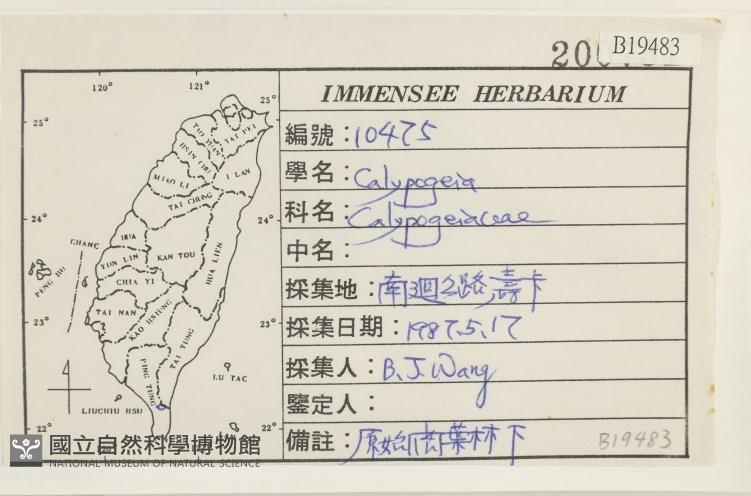 B19483
120°
121°
25°
25°
24°
24°
23°
23°
22°
22°
TAI PEI
I LAN
MIAO LI
TAI CHUNG
CHANG
HUA
NAN TOU
HUA LIEN
YUN LIN
CHIA YI
PENG HU
TAI NAN
KAO HSIUNG
TAI TUNG
PING TUNG
LU TAO
LIUCHIU HSU
IMMENSEE HERBARIUM
編號:10475
學名:Calypogeia
科名:Calypogeiaceae
中名:
採集地:南迴公路壽卡
採集日期:1987.5.17
採集人:B.J.Wang
鑒定人:
備註:原始闊葉林下
B19483
國立自然科學博物館
NATIONAL MUSEUM OF NATURAL SCIENCE